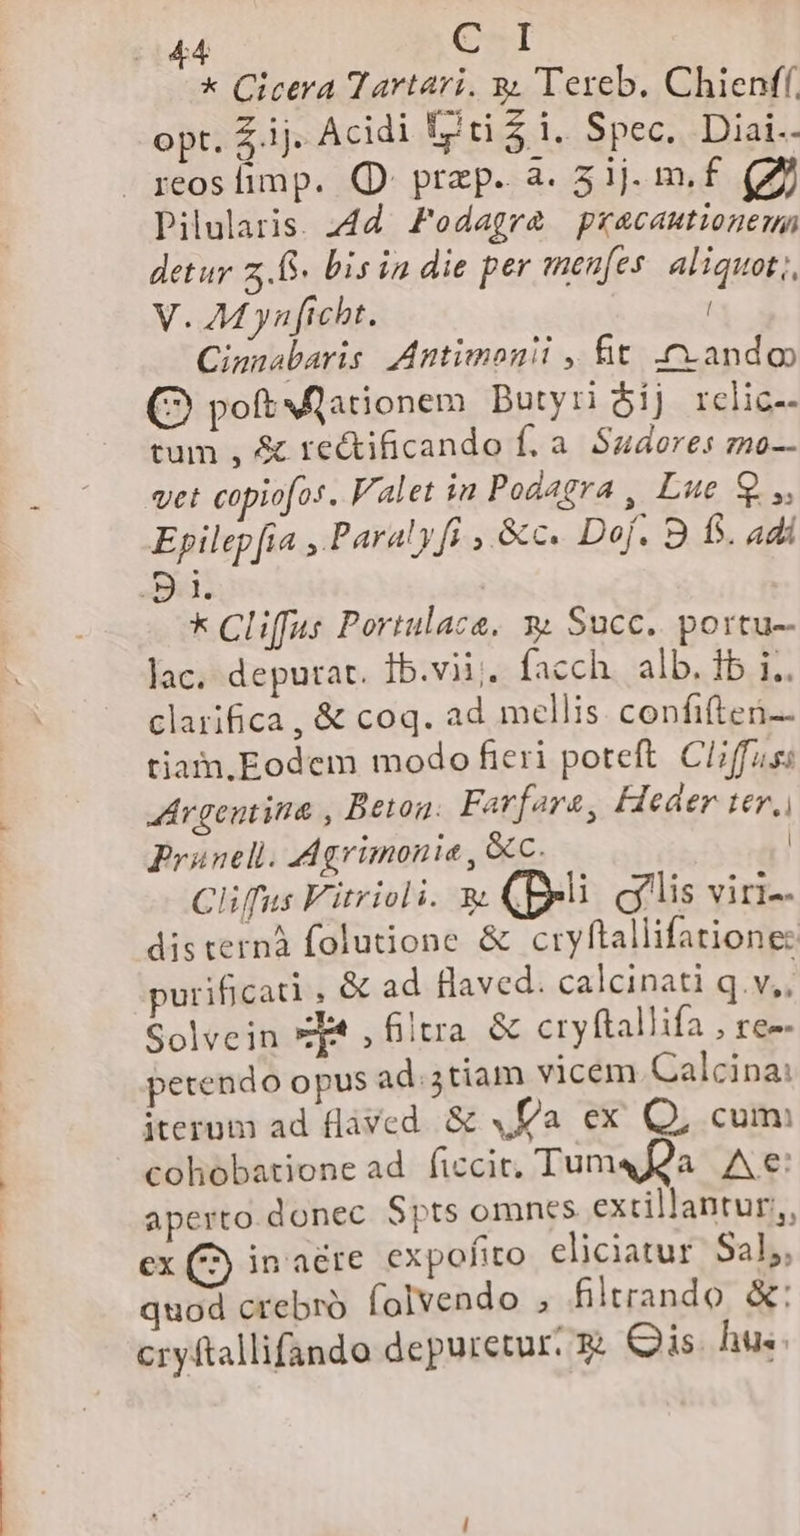 44 C I
* Cicera Tartari. ℞ Tereb. Chienſſ.
opt. ℥ ij. Acidi ti ℥ i. Spec. Diai-
reos ſimp. præp. a. ʒ ij. m. f
Pilularis. Ad Podagræ præcautionem
detur ʒ. ß. bis in die per menſes aliquot,
V. Mynſicht.
Cinnabaris Antimonii, fit ando
poſt ationem Butyri ij relic-
tum, & rectificando ſ. a Sudores mo-
vet copioſos. Valet in Podagra, Lue ♀,
Epilepſia, Paralyſi, &c. Doſ. ℈ ß. ad
℈ i.
* Cliſſus Portulacæ. ℞ Succ. portu-
lac. depurat. ℔.vii. ſacch alb. ℔ i.
clarifica, & coq. ad mellis conſiſten-
tiam. Eodem modo fieri poteſt Cliſſus
Argentinæ, Beton. Farfaræ, Heder ter.
Prunell. Agrimoniæ, &c.
Cliſſus Vitrioli. ℞ li lis viri-
dis ternâ ſolutione & cryſtalliſatione
purificati, & ad flaved. calcinati q.v.
Solve in , filtra & cryſtalliſa, re-
petendo opus ad 3tiam vicem Calcina
iterum ad flaved & a ex , cum
cohobatione ad ſiccit. Tum a △ e
aperto donec Spts omnes extillantur,
ex in aëre expoſito eliciatur Sal,
quod crebrò ſolvendo, filtrando &
cryſtalliſando depuretur. ℞ is hu